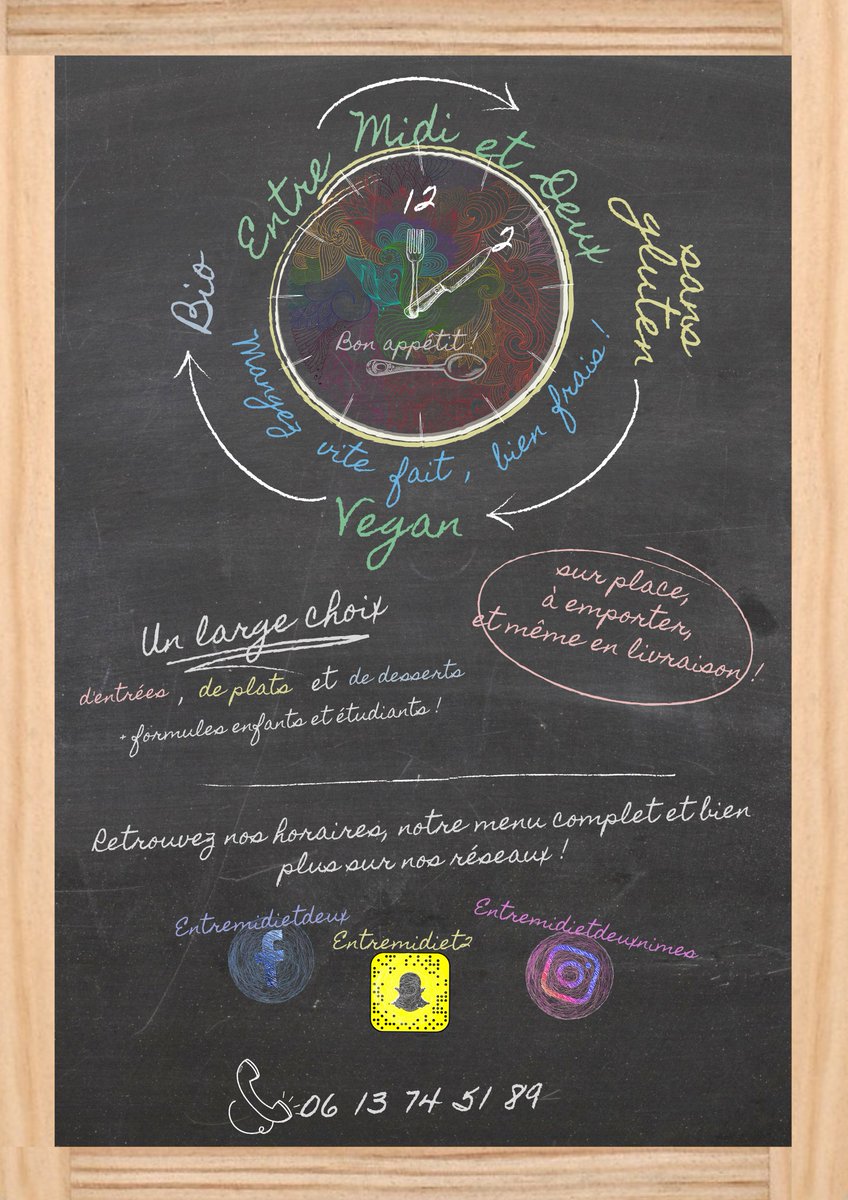 Entre Midi et Deux
12
2
Bon appétit !
Mangez vite fait, bien frais !
Bio
sans
gluten
Vegan
sur place,
à emporter,
et même en livraison !
Un large choix
d'entrées, de plats et de desserts
+ formules enfants et étudiants !
Retrouvez nos horaires, notre menu complet et bien
plus sur nos réseaux !
Entremidietdeux
Entremidiet2
Entremidietdeuxnimes
06 13 74 51 89